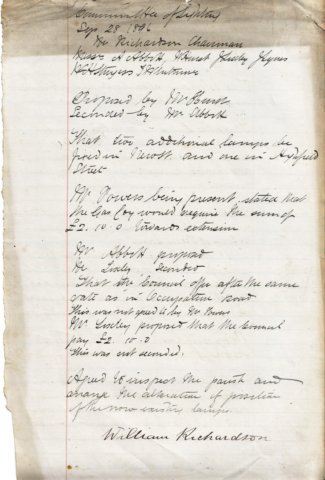 Committee of Lighting
Sep. 28 1896
Mr Richardson Chairman
Messrs A Abbott, Hurst
Proposed by Mr Hurst
Seconded by Mr Abbott
That two additional lamps be
fixed in and one in
Street
Mr Powers being present, stated that
the Gas Coy would require the sum of
£2. 10. 0 towards extension
Mr Abbott proposed
Mr Lixley Seconded
That the Council offer after the same
rate as in Occupation Road
This was not agreed to by Mr Powers
Mr Lixley proposed that the Council
pay £2. 10. 0
This was not seconded.
Agreed to inspect the parish and
arrange the alteration of position
of the now existing lamps.
William Richardson